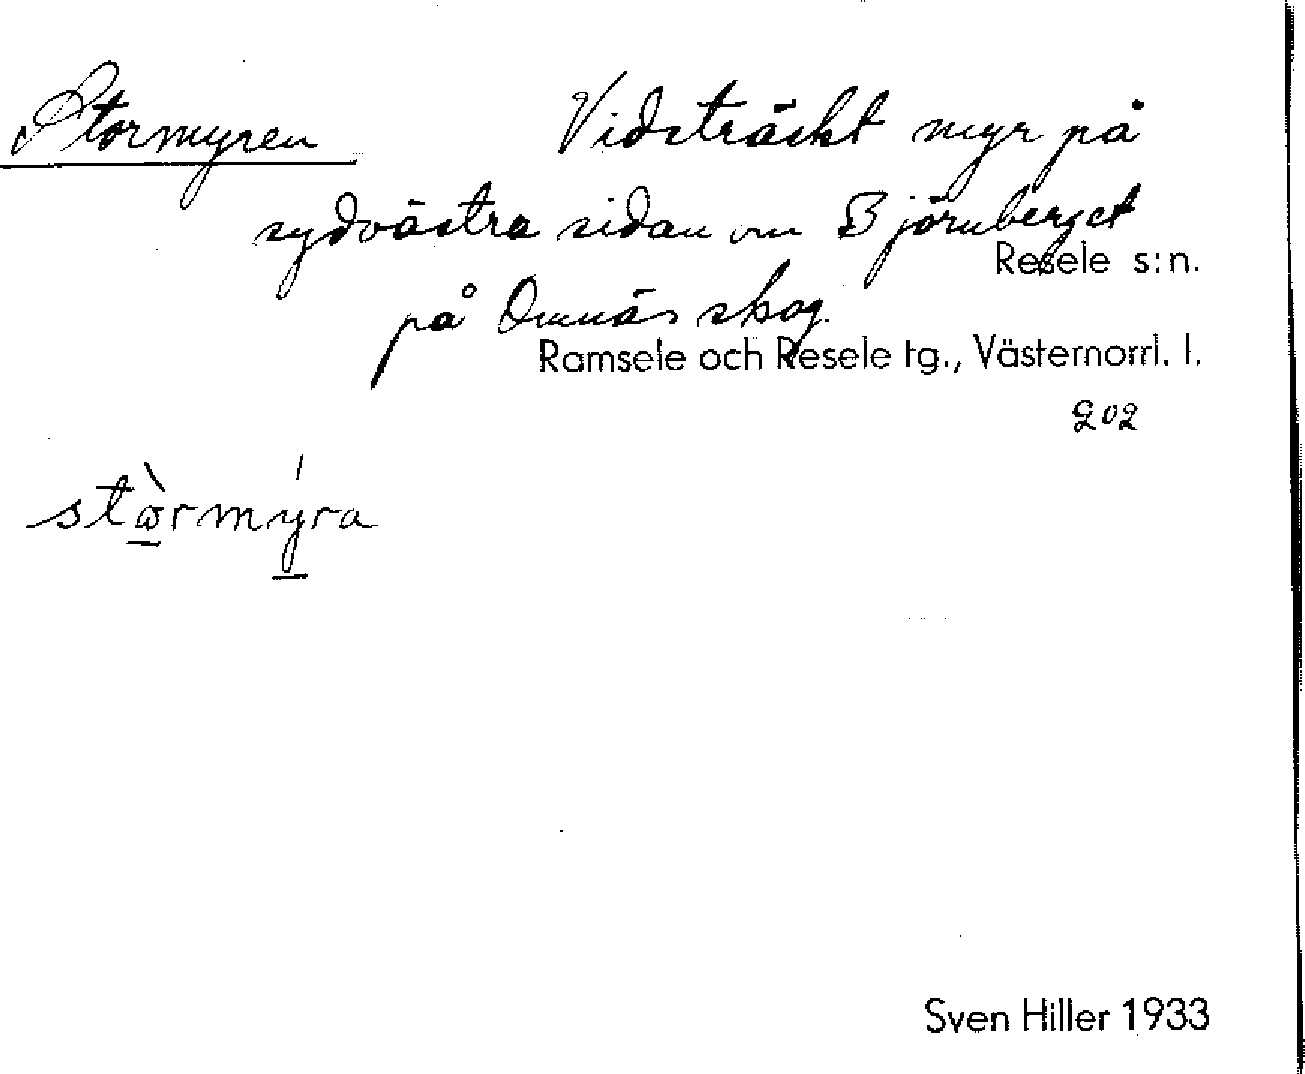 Stormyren Vidsträckt myr på
sydvästra sidan om Björnberget
Resele s:n.
på Omnäs skog.
Ramsele och Resele tg., Västernorrl. l.
202
stὼrmýra
Sven Hiller 1933